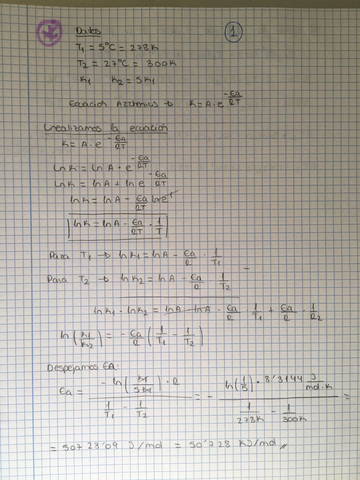 Datos 1
T₁ = 5°C = 278K
T₂ = 27°C = 300K
K₁ K₂ = 5K₁
Ecuación Arrhenius → K = A·e^(-Ea/RT)
Linealizamos la ecuación
K = A·e^(-Ea/RT)
ln K = ln A · e^(-Ea/RT)
ln K = ln A + ln e^(-Ea/RT)
ln K = ln A - Ea/RT ln e
ln K = ln A - Ea/R · 1/T
Para T₁ → ln K₁ = ln A - Ea/R · 1/T₁
Para T₂ → ln K₂ = ln A - Ea/R · 1/T₂
ln K₁ - ln K₂ = ln A - ln A - Ea/R · 1/T₁ + Ea/R · 1/R₂
ln (K₁/K₂) = - Ea/R (1/T₁ - 1/T₂)
Despejamos EA:
Ea = (- ln (K₁/5K₁) · R) / (1/T₁ - 1/T₂) = - (ln (1/5) · 8'3144 J/mol·K) / (1/278K - 1/300K) =
= 50728'09 J/mol = 50'728 KJ/mol